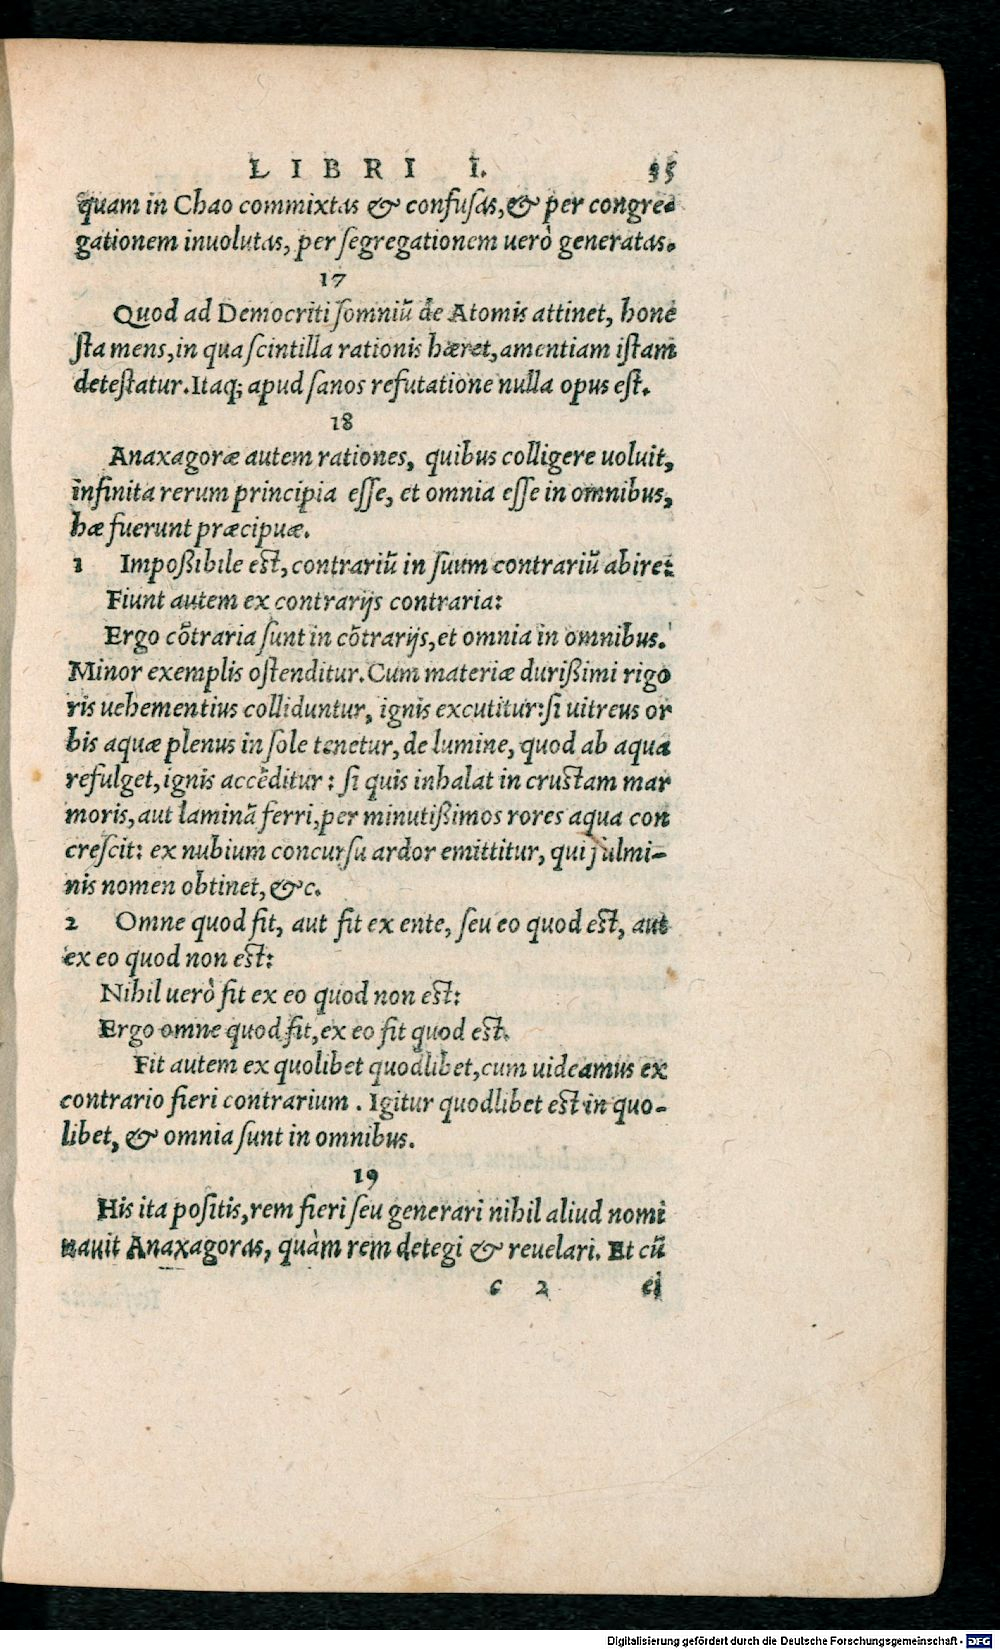 LIBRI I. 35
quam in Chao commixtas & confusas, & per congre-
gationem inuolutas, per segregationem uerò generatas.
17
Quod ad Democriti somniũ de Atomis attinet, hone
sta mens, in qua scintilla rationis hæret, amentiam istam
detestatur. Itaq; apud sanos refutatione nulla opus est.
18
Anaxagoræ autem rationes, quibus colligere uoluit,
infinita rerum principia esse, et omnia esse in omnibus,
hæ fuerunt præcipuæ.
1 Impoßibile est, contrariũ in suum contrariũ abire:
Fiunt autem ex contrarijs contraria:
Ergo cõtraria sunt in cõtrarijs, et omnia in omnibus.
Minor exemplis ostenditur. Cum materiæ durißimi rigo
ris uehementius colliduntur, ignis excutitur: si uitreus or
bis aquæ plenus in sole tenetur, de lumine, quod ab aqua
refulget, ignis accẽditur: si quis inhalat in crustam mar
moris, aut laminã ferri, per minutißimos rores aqua con
crescit: ex nubium concursu ardor emittitur, qui fulmi-
nis nomen obtinet, &c.
2 Omne quod fit, aut fit ex ente, seu eo quod est, aut
ex eo quod non est:
Nihil uerò fit ex eo quod non est:
Ergo omne quod fit, ex eo fit quod est.
Fit autem ex quolibet quodlibet, cum uideamus ex
contrario fieri contrarium. Igitur quodlibet est in quo-
libet, & omnia sunt in omnibus.
19
His ita positis, rem fieri seu generari nihil aliud nomi
nauit Anaxagoras, quàm rem detegi & reuelari. Et cũ
c 2 ei
Digitalisierung gefördert durch die Deutsche Forschungsgemeinschaft - DFG